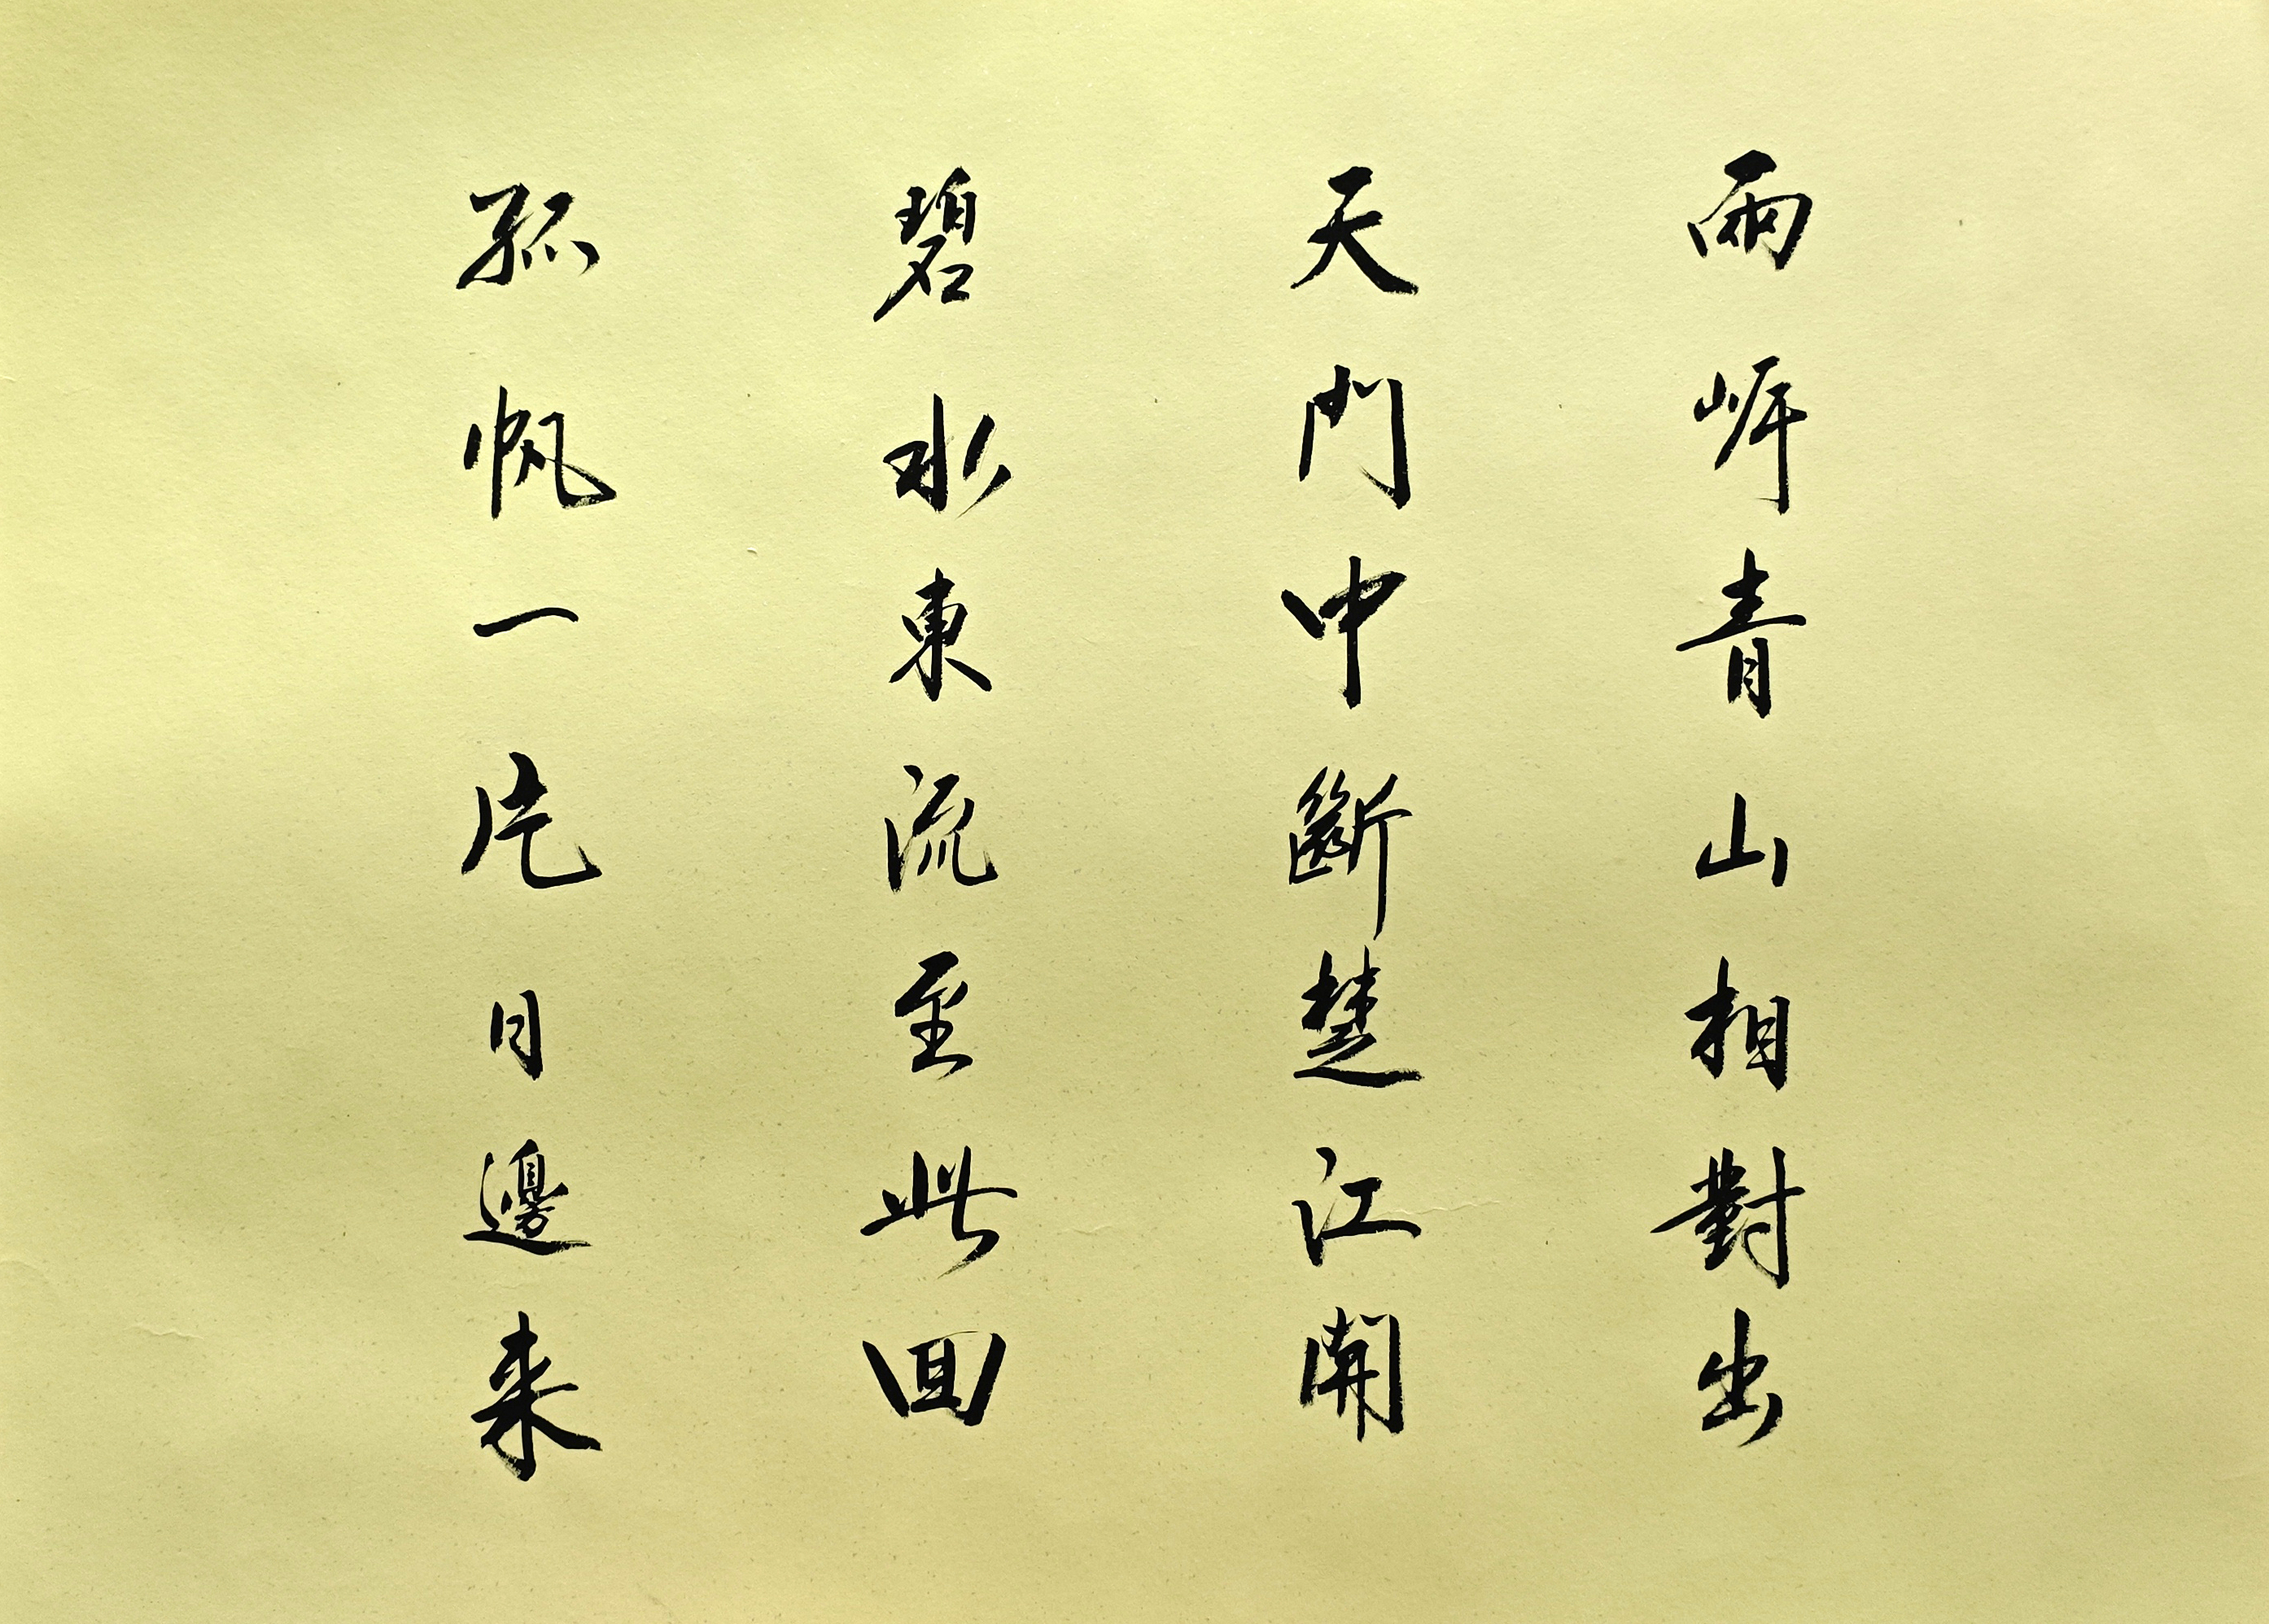 兩岸青山相對出
天門中斷楚江開
碧水東流至此回
孤帆一片日邊来